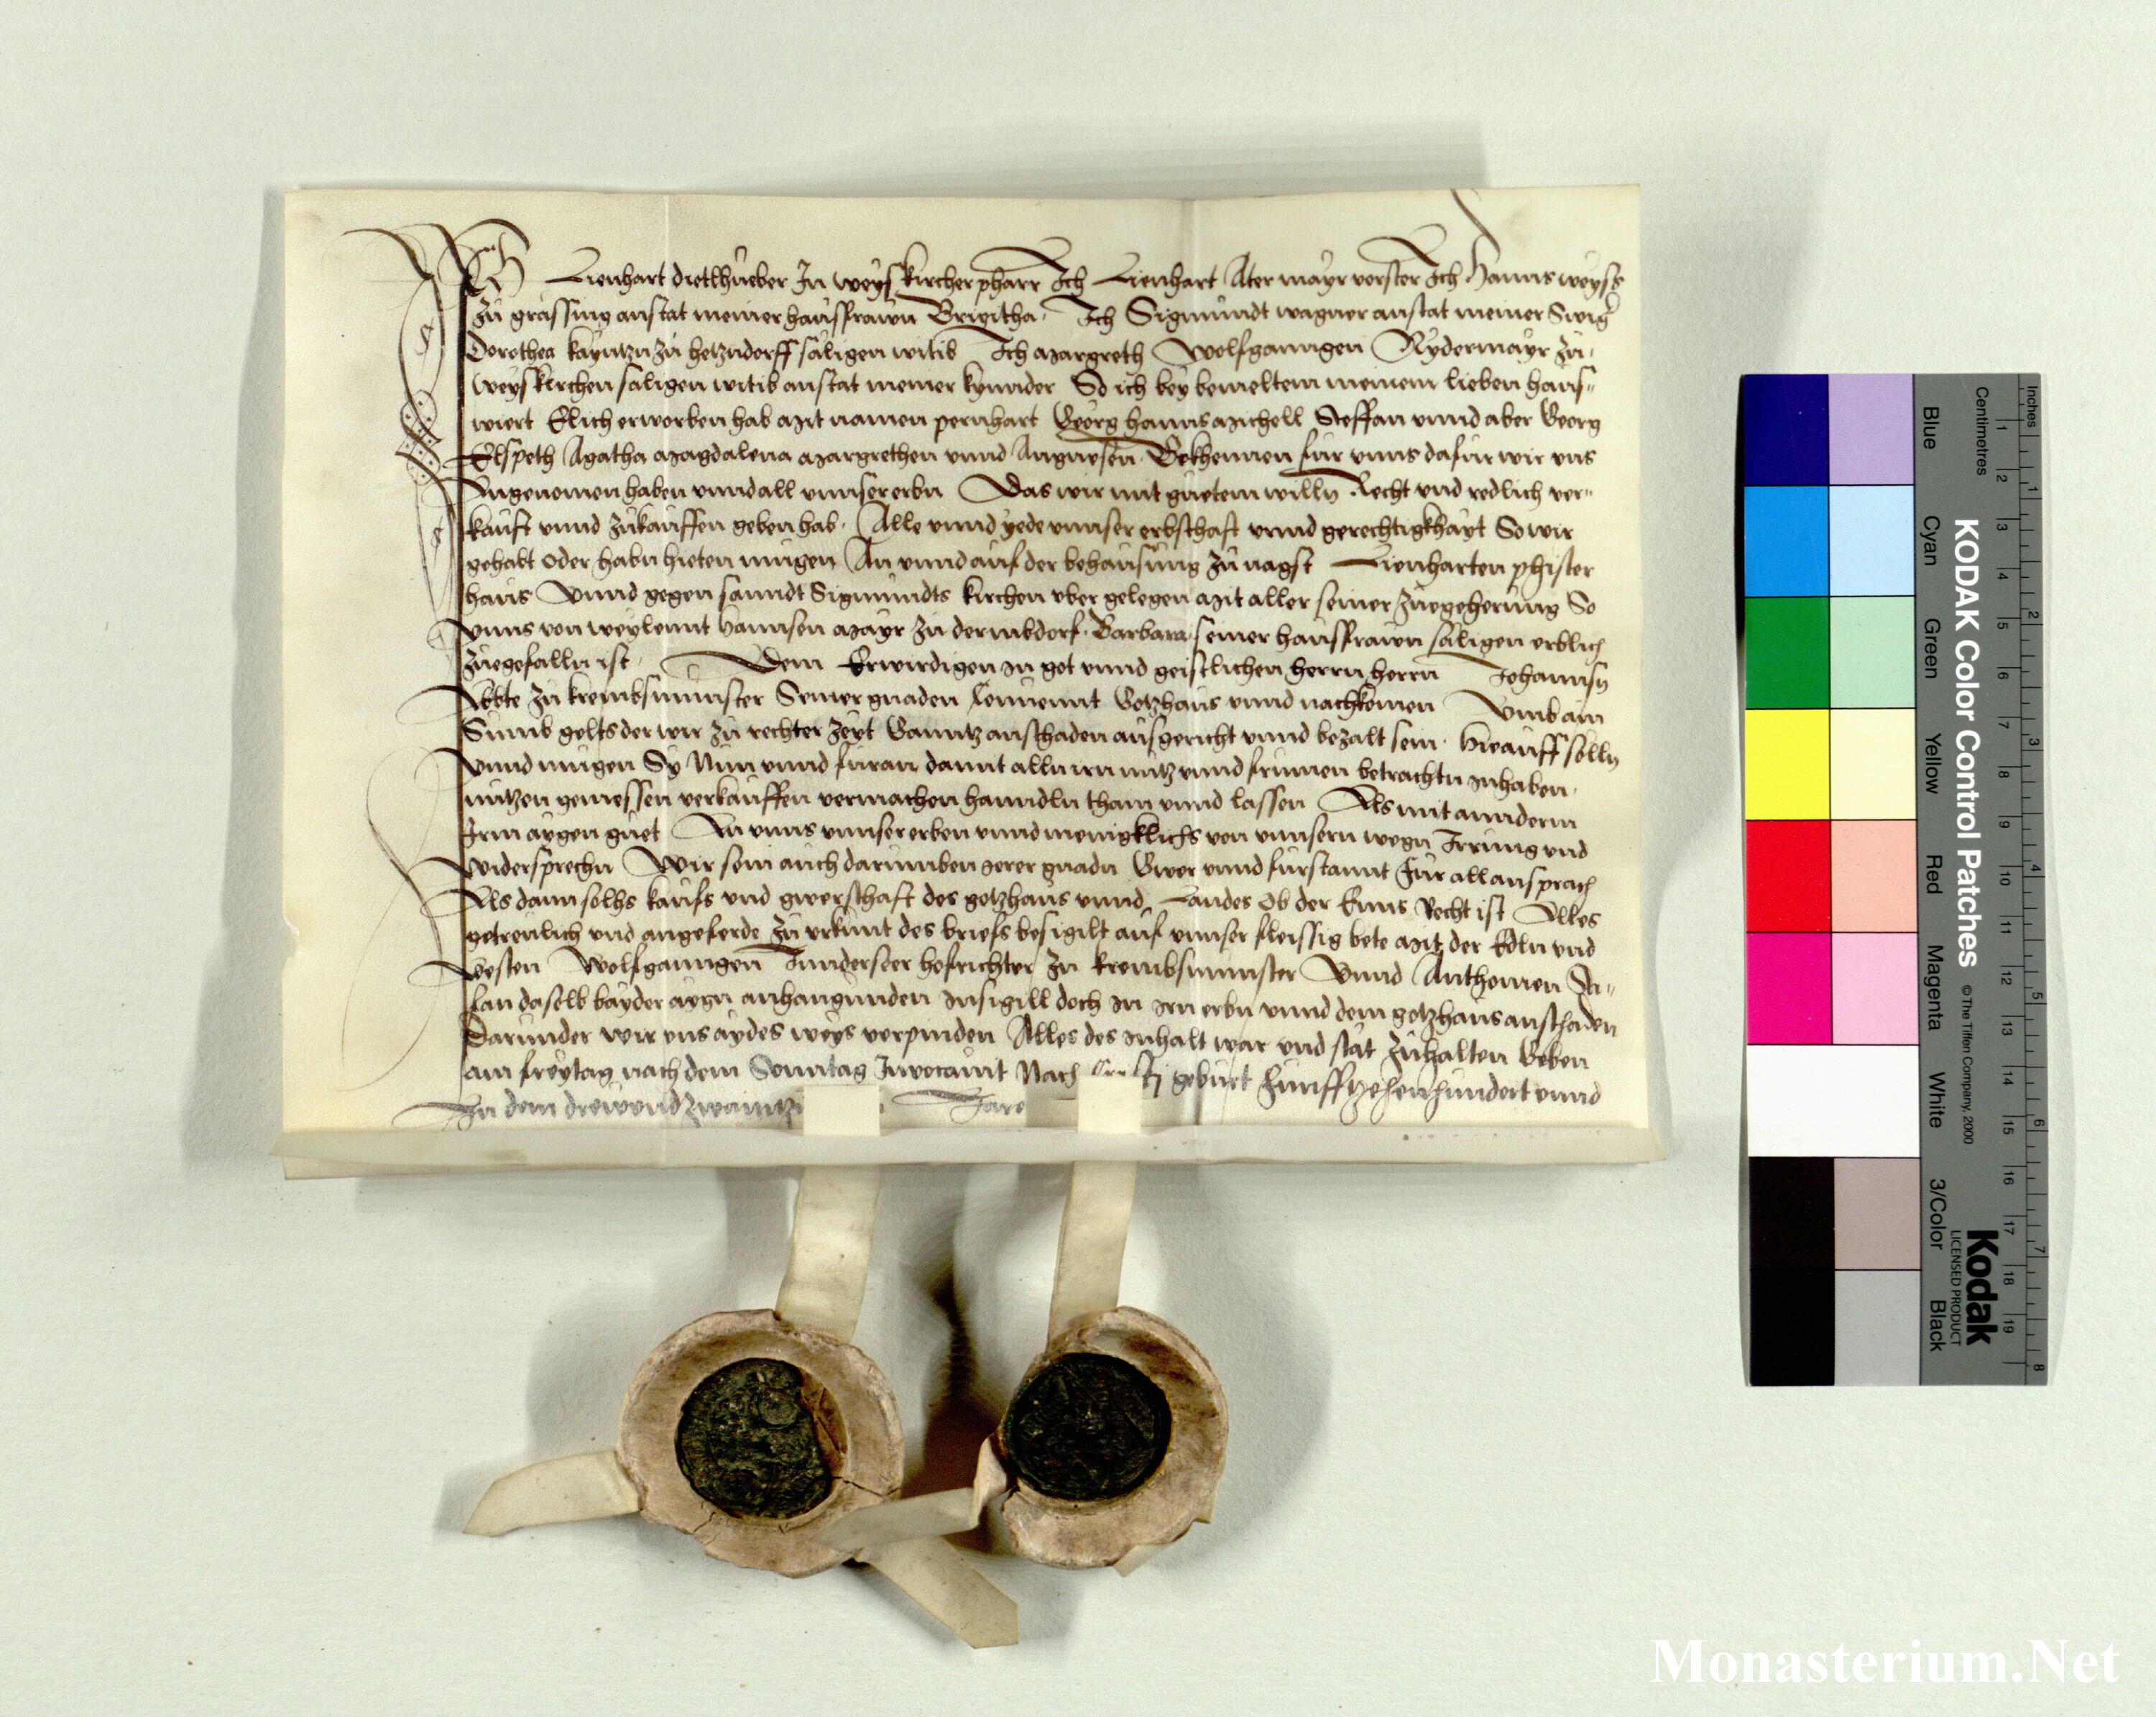 Ich Lienhart diethueber In weyskircher pharr Ich Lienhart Atermayr vorster Ich Hanns weyss
zu grassing anstat meiner hausfrawn Brigitha. Ich Sigmundt wagner anstat meiner Swig
Dorothea kayntzn zu hetzndorff saligen witib Ich Margreth Wolfganngen Nydermayr zu
weyskirchen saligen witib anstat meiner kynnder So ich bey bemeltem meinem lieben haus-
wiert Elich erworben hab Mit namen pernhart Georg hanns Michell Steffan vnnd aber Georg
Elspeth Agatha Magdalena Margrethen vnnd Anngnesen. Bekhennen für vnns dafür wir vns
Angenomen haben vnnd all vnnser erbn Das wir mit guetem willn Recht vnd redlich ver-
kauft vnnd zukauffen geben hab. Alle vnnd yede vnnser erbschaft vnnd gerechtigkhayt So wir
gehabt oder habn hieten mügen An vnnd auf der behausung zu nagst Lienharten phister
haus Vnnd gegen sanndt Sigmundts kirchen vber gelegen Mit aller seiner zuegeherung So
vnns von weylennt Hannsen Mayr zu dernbdorf. Barbara seiner hausfrawn säligen erblich
zuegefalln ist. Dem Erwirdigen In got vnnd geistlichen herrn herrn Johannsn
Abbte zu krembsmunster Seiner gnaden Conuennt Gotzhaus vnnd nachkomen Vmb ain
Sumb gelts der wir zu rechter zeyt Ganntz an schaden ausgericht vnnd bezalt sein. Hierauff solln
vnnd mügen Sy Nun vnnd füran damit alln irn nutz vnnd frumen betrachtn Inhaben.
nutzen geniessen verkauffen vermachen hanndln thain vnnd lassen Als mit anndern
Irm aygen guet An vnns vnnser erben vnnd menigklichs von vnnsern wegn Irrung vnd
widersprechn Wir sein auch darumben Ierer gnadn Gwer vnnd fürstannt Für all ansprach
Als dann solhs kaufs vnd gwerschaft des gotzhaus vnnd Landes Ob der Enns Recht ist Alles
getreulich vnd angeferde Zu vrkunt des briefs besigilt auf vnnser fleissig bete Mit der Edln vnd
vesten Wolfganngen Tunderseer hofrichter zu krembsmunster Vnnd Anthonien
daselb bayder aygn anhangunden Insigill doch In Irn erbn vnnd dem gotzhaus an schaden
Darunder wir vns aydes weys verpinden Alles des Inhalt war vnd stät zuhalten Geben
am freytag nach dem Sonntag Inuocauit Nach geburt Funffzehenhundert vnnd
In dem drewvndzwaintzi Jare
KODAK Color Control Patches
© The Tiffen Company, 2000
Kodak
LICENSED PRODUCT
Inches
Centimetres
Blue Cyan Green Yellow Red Magenta White 3/Color Black
1 2 3 4 5 6 7 8
1 2 3 4 5 6 7 8 9 10 11 12 13 14 15 16 17 18 19
Monasterium.Net